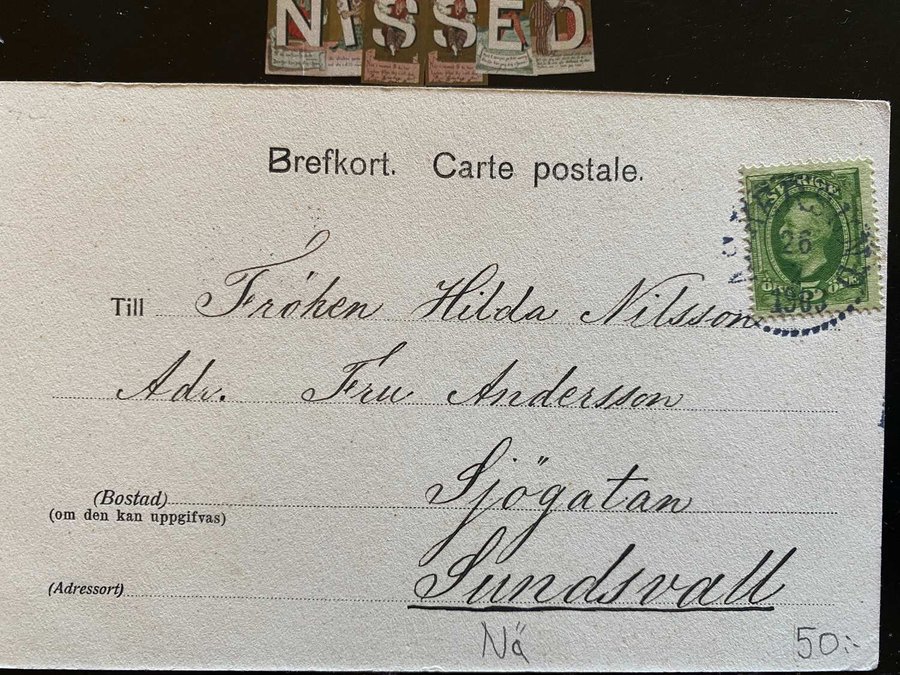 NISSED
Brefkort. Carte postale.
SVERIGE
26
5
ÖRE
Till Fröken Hilda Nilsson
Adr. Fru Andersson
(Bostad) Sjögatan
(om den kan uppgifvas)
(Adressort) Sundsvall
Nä 50:-